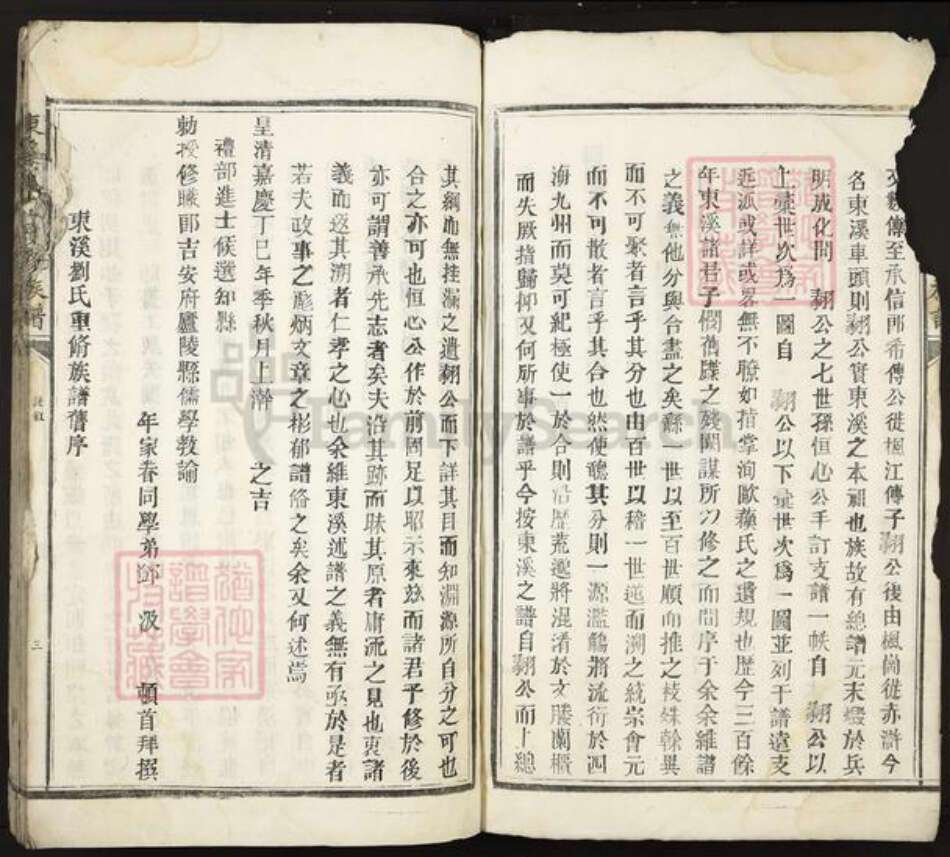 傳至承信郎希傳公徙楓江傳子翱公後由楓崗徙赤滸今
名東溪車頭則翱公實東溪之本祖也族故有總譜元末燬於兵
明成化間 翱公之七世孫恒心公手訂支譜一帙自 翱公以
上彙世次為一圖自 翱公以下彙世次為一圖並列于譜遠支
近派或詳或畧無不瞭如指掌洵歐蘇氏之遺規也歷今三百餘
年東溪諸君子憫舊牒之殘闕謀所以修之而問序于余余維譜
之義無他分與合盡之矣蘇一世以至百世順而推之枝殊幹異
而不可聚者言乎其分也由百世以稽一世逆而溯之統宗會元
而不可散者言乎其合也然使聽其分則一源濫觴將流衍於四
海九州而莫可紀極使一於合則沿歷荒邈將混淆於文勝闌槪
而失厥指歸抑又何所事於譜乎今按東溪之譜自翱公而上總
其綱而無挂漏之遺翱公而下詳其目而知淵源所自分之可也
合之亦可也恒心公作於前固足以昭示來玆而諸君子修於後
亦可謂善承先志者矣夫沿其跡而昧其原者庸流之見也東諸
義而遡其溯者仁孝之心也余維東溪述譜之義無有亟於是者
若夫政事之彪炳文章之彬郁譜備之矣余又何述焉
皇清嘉慶丁巳年季秋月上澣 之吉
禮部進士候選知縣
勅授修職郎吉安府廬陵縣儒學教諭
年家眷同學弟鄒 汲 頓首拜撰
東溪劉氏重脩族譜舊序
三
譜學會
收藏
FamilySearch